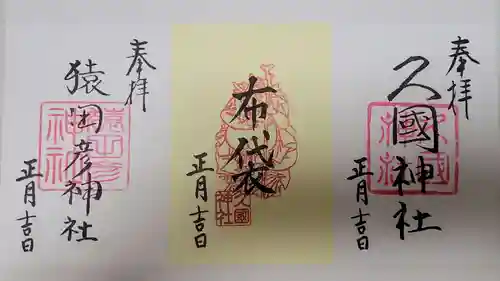 奉拝
久國神社
正月吉日
布袋
正月吉日
久國
神社
奉拝
猿田彦神社
正月吉日